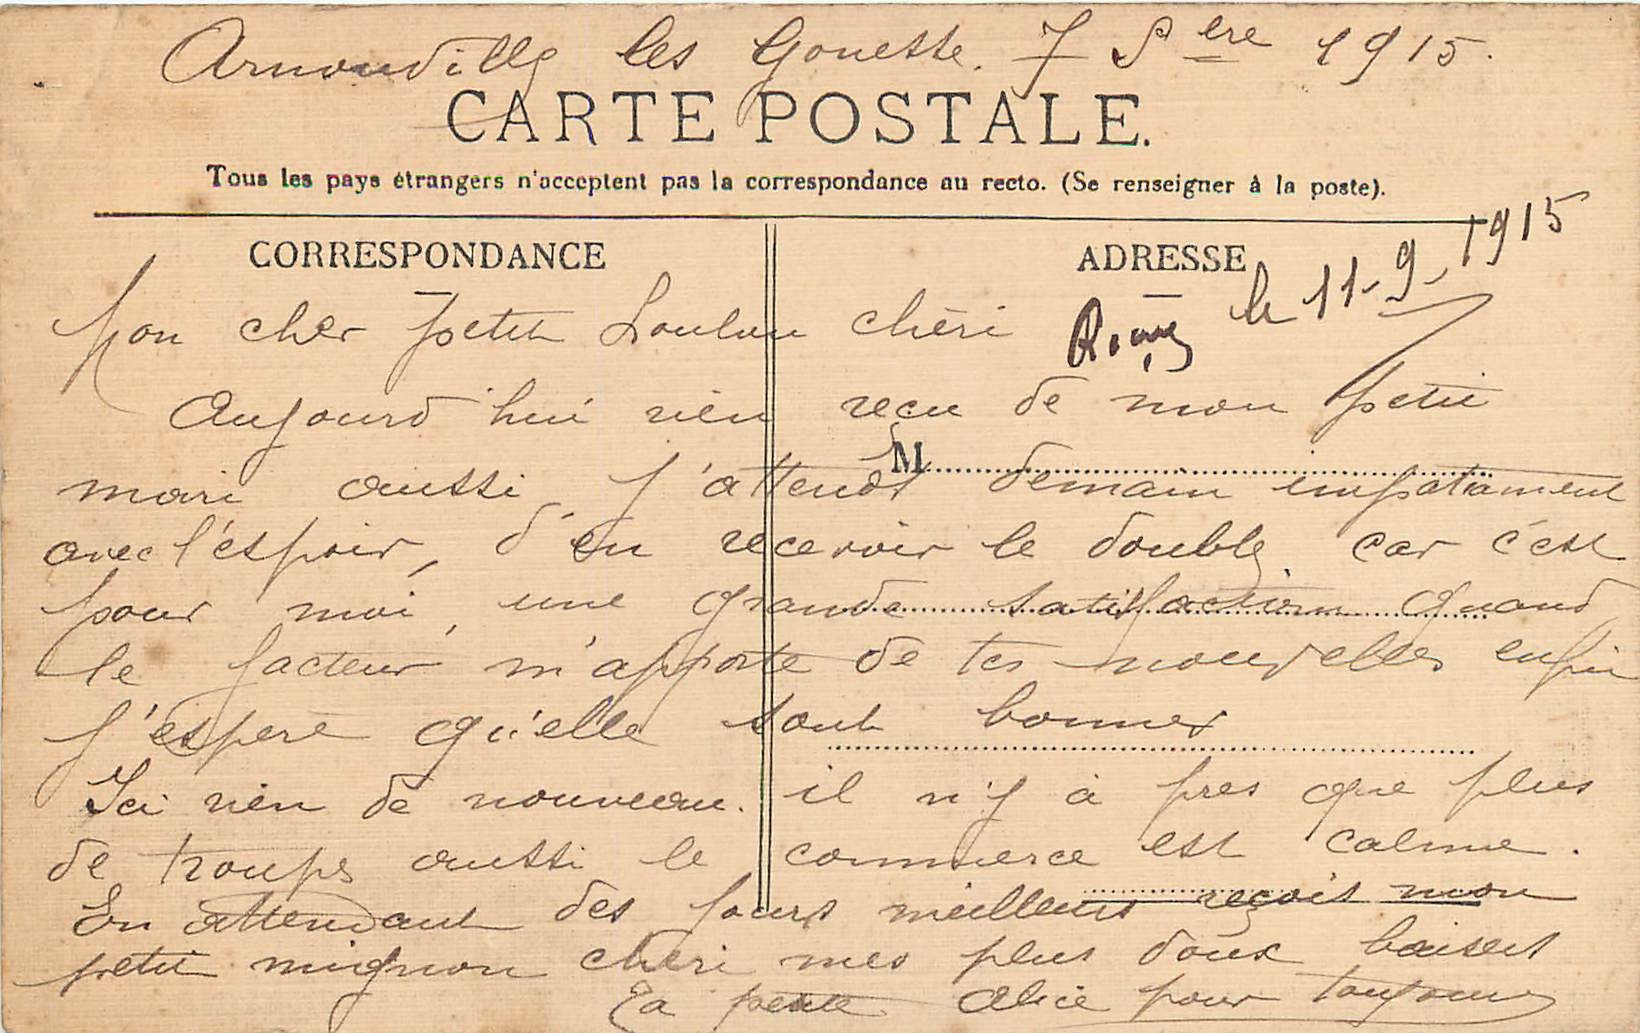 Arnouville les Gonesse. 7 Sbre 1915.
CARTE POSTALE.
Tous les pays étrangers n'acceptent pas la correspondance au recto. (Se renseigner à la poste).
CORRESPONDANCE
ADRESSE
le 11-9-1915
Mon cher petit Loulou chéri
Aujourd'hui rien recu de mon petit
M
mari aussi j'attends demain impatiament
avec l'espoir, d'en recevoir le double car c'est
pour moi, une grande satisfaction quand
le facteur m'apporte de tes nouvelles enfin
j'espere qu'elle sont bonnes
Ici rien de nouveau. il n'y à pres que plus
de troupes aussi le commerce est calme.
En attendant des jours meilleurs reçois mon
petit mignon chéri mes plus doux baisers
Ta petite Alice pour toujours